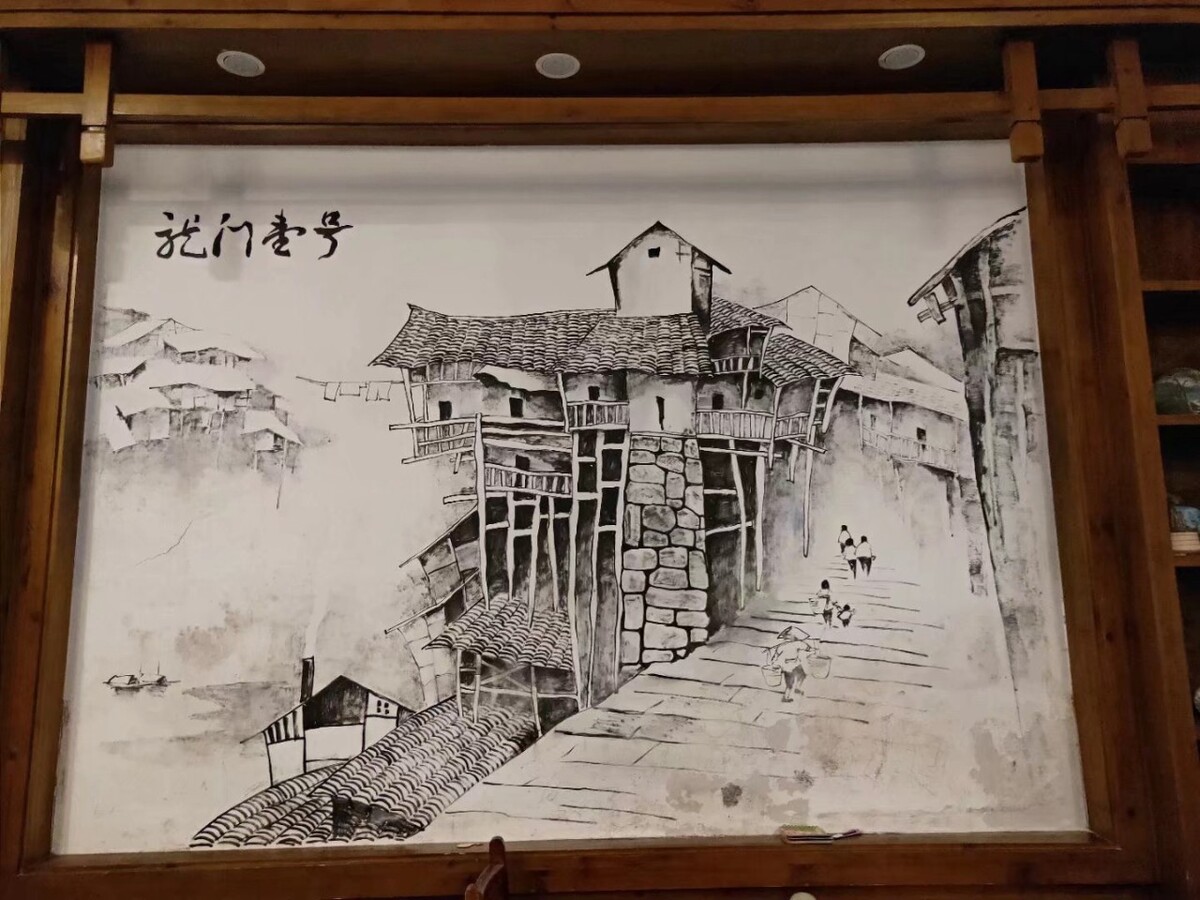 龙门壹号